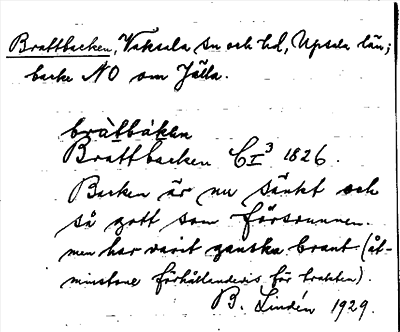 Brattbacken, Vaksala sn och hd, Upsala län;
backe NO om Jälla.
bràtbákên
Brattbacken C I³ 1826.
Backen är nu sänkt och
så gott som försvunnen.
men har varit ganska brant (åt-
minstone förhållandevis för trakten).
B. Lindén 1929.